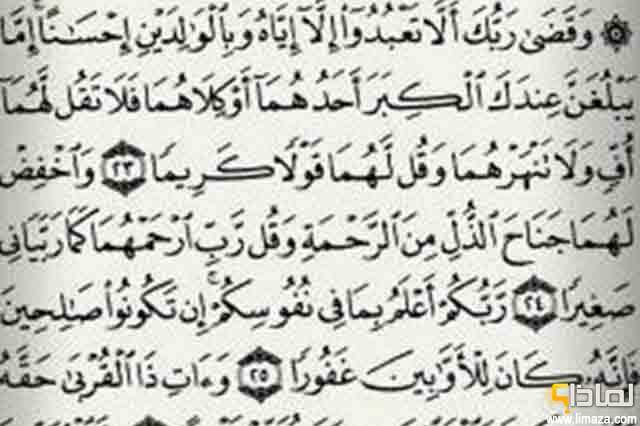 ۞ وَقَضَىٰ رَبُّكَ أَلَّا تَعْبُدُوٓا۟ إِلَّآ إِيَّاهُ وَبِٱلْوَٰلِدَيْنِ إِحْسَٰنًا ۚ إِمَّا
يَبْلُغَنَّ عِندَكَ ٱلْكِبَرَ أَحَدُهُمَآ أَوْ كِلَاهُمَا فَلَا تَقُل لَّهُمَآ
أُفٍّ وَلَا تَنْهَرْهُمَا وَقُل لَّهُمَا قَوْلًا كَرِيمًا ٢٣ وَٱخْفِضْ
لَهُمَا جَنَاحَ ٱلذُّلِّ مِنَ ٱلرَّحْمَةِ وَقُل رَّبِّ ٱرْحَمْهُمَا كَمَا رَبَّيَانِى
صَغِيرًا ٢٤ رَّبُّكُمْ أَعْلَمُ بِمَا فِى نُفُوسِكُمْ ۚ إِن تَكُونُوا۟ صَٰلِحِينَ
فَإِنَّهُۥ كَانَ لِلْأَوَّٰبِينَ غَفُورًا ٢٥ وَءَاتِ ذَا ٱلْقُرْبَىٰ حَقَّهُۥ
لماذا؟
www.limaza.com